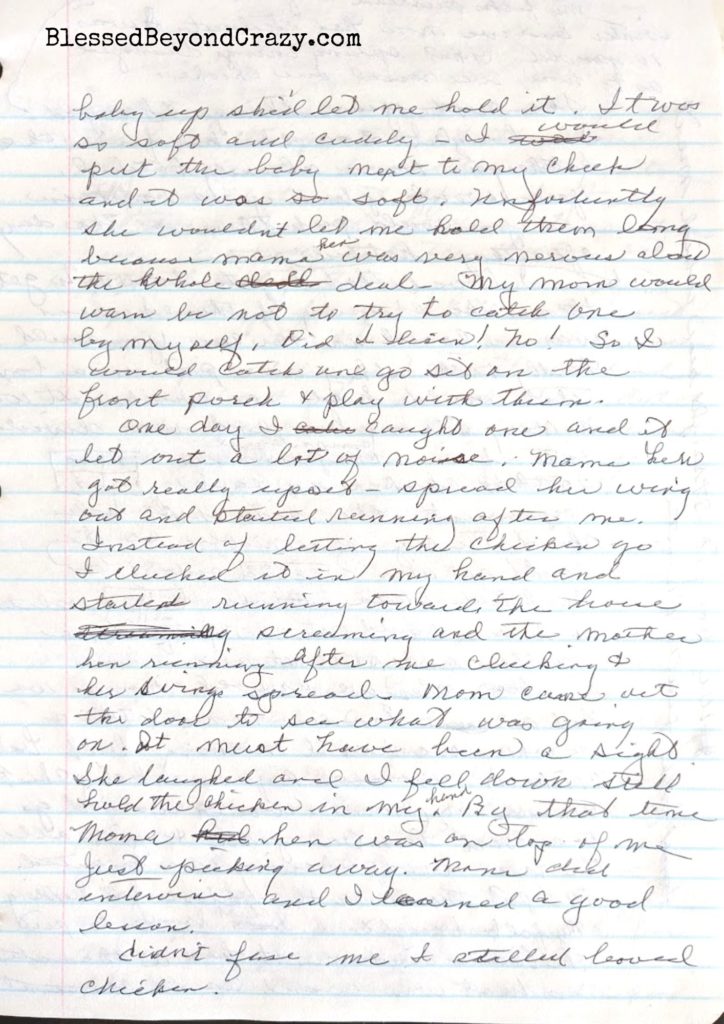 BlessedBeyondCrazy.com
baby up she'd let me hold it. It was
so soft and cuddly - I would
put the baby next to my cheek
and it was so soft. Unfortuntly
she wouldn't let me hold them long
because mama hen was very nervous about
the whole deal - My mom would
warn be not to try to catch one
by myself. Did I lisen! No! So I
would catch one go sit on the
front porch & play with them.
One day I caught one and it
let out a lot of noise. Mama hen
got really upset - spread her wing
out and started running after me.
Instead of letting the chicken go
I cluched it in my hand and
started running towards the house
screaming and the mother
hen running after me clucking &
her wings spread. Mom came out
the door to see what was going
on. It must have been a sight.
She laughed and I fell down still
hold the chicken in my hand. By that time
Moma hen was on top of me
just pecking away. Mom did
intervine and I learned a good
lesson.
didn't fase me I stilled loved
chicken.